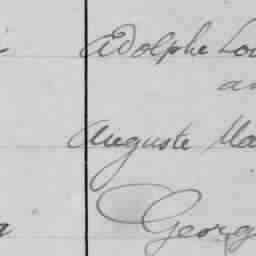 Adolphe Lou
an
Auguste Ma
Georg